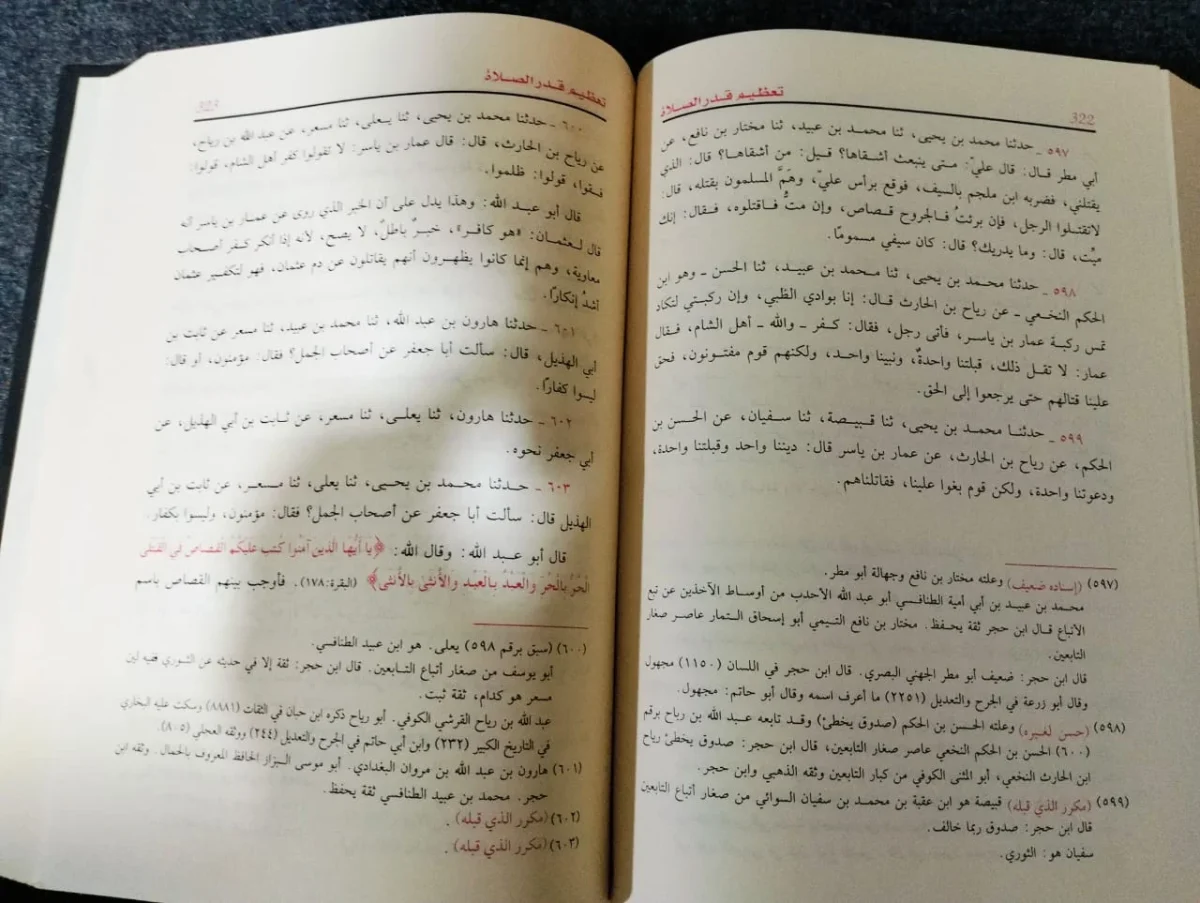 322
تعظيم قدر الصلاة
٥٩٧ ـ حدثنا محمد بن يحيى، ثنا محمد بن عبيد، ثنا مختار بن نافع، عن
أبي مطر قال: قال عليّ: متى ينبعث أشقاها؟ قيل: من أشقاها؟ قال: الذي
يقتلني، فضربه ابن ملجم بالسيف، فوقع برأس عليّ، وهَمَّ المسلمون بقتله، قال:
لاتقتلوا الرجل، فإن برئتُ فالجروح قصاص، وإن متُّ فاقتلوه، فقال: إنك
ميِّت، قال: وما يدريك؟ قال: كان سيفي مسمومًا.
٥٩٨ ـ حدثنا محمد بن يحيى، ثنا محمد بن عبيد، ثنا الحسن ـ وهو ابن
الحكم النخعي ـ عن رياح بن الحارث قال: إنا بوادي الظبي، وإن ركبتي لتكاد
تمس ركبة عمار بن ياسر، فأتى رجل، فقال: كفر ـ والله ـ أهل الشام، فقال
عمار: لا تقل ذلك، قبلتنا واحدةٌ، ونبينا واحد، ولكنهم قوم مفتونون، فحق
علينا قتالهم حتى يرجعوا إلى الحق.
٥٩٩ ـ حدثنا محمد بن يحيى، ثنا قبيصة، ثنا سفيان، عن الحسن بن
الحكم، عن رياح بن الحارث، عن عمار بن ياسر قال: ديننا واحد وقبلتنا واحدة،
ودعوتنا واحدة، ولكن قوم بغوا علينا، فقاتلناهم.
(٥٩٧) (إسناده ضعيف) وعلته مختار بن نافع وجهالة أبو مطر.
محمد بن عبيد بن أبي أمية الطنافسي أبو عبد الله الأحدب من أوساط الآخذين عن تبع
الأتباع قال ابن حجر ثقة يحفظ. مختار بن نافع التيمي أبو إسحاق التمار عاصر صغار
التابعين.
قال ابن حجر: ضعيف أبو مطر الجهني البصري. قال ابن حجر في اللسان (١١٥٠) مجهول
وقال أبو زرعة في الجرح والتعديل (٢٢٥١) ما أعرف اسمه وقال أبو حاتم: مجهول.
(٥٩٨) (حسن لغيره) وعلته الحسن بن الحكم (صدوق يخطئ) وقد تابعه عبد الله بن رباح برقم
(٦٠٠) الحسن بن الحكم النخعي عاصر صغار التابعين، قال ابن حجر: صدوق يخطئ رياح
ابن الحارث النخعي، أبو المثنى الكوفي من كبار التابعين وثقه الذهبي وابن حجر.
(٥٩٩) (مكرر الذي قبله) قبيصة هو ابن عقبة بن محمد بن سفيان السوائي من صغار أتباع التابعين
قال ابن حجر: صدوق ربما خالف.
سفيان هو: الثوري.
تعظيم قدر الصلاة
323
٦٠٠ ـ حدثنا محمد بن يحيى، ثنا يعلى، ثنا مسعر، عن عبد الله بن رياح،
عن رياح بن الحارث، قال: قال عمار بن ياسر: لا تقولوا كفر أهل الشام، قولوا:
فسقوا، قولوا: ظلموا.
قال أبو عبد الله: وهذا يدل على أن الخبر الذي روى عن عمار بن ياسر أنه
قال لعثمان: «هو كافر»، خبرٌ باطلٌ، لا يصح، لأنه إذا أنكر كفر أصحاب
معاوية، وهم إنما كانوا يظهرون أنهم يقاتلون عن دم عثمان، فهو لتكفير عثمان
أشدُ إنكارًا.
٦٠١ ـ حدثنا هارون بن عبد الله، ثنا محمد بن عبيد، ثنا مسعر عن ثابت بن
أبي الهذيل، قال: سألت أبا جعفر عن أصحاب الجمل؟ فقال: مؤمنون، أو قال:
ليسوا كفارًا.
٦٠٢ ـ حدثنا هارون، ثنا يعلى، ثنا مسعر، عن ثابت بن أبي الهذيل، عن
أبي جعفر نحوه.
٦٠٣ ـ حدثنا محمد بن يحيى، ثنا يعلى، ثنا مسعر، عن ثابت بن أبي
الهذيل قال: سألت أبا جعفر عن أصحاب الجمل؟ فقال: مؤمنون، وليسوا بكفار.
قال أبو عبد الله: وقال الله: ﴿يَا أَيُّهَا الَّذِينَ آمَنُوا كُتِبَ عَلَيْكُمُ الْقِصَاصُ فِي الْقَتْلَى
الْحُرُّ بِالْحُرِّ وَالْعَبْدُ بِالْعَبْدِ وَالْأُنثَىٰ بِالْأُنثَىٰ﴾ (البقرة:١٧٨). فأوجب بينهم القصاص باسم
(٦٠٠) (سبق برقم ٥٩٨) يعلى. هو ابن عبيد الطنافسي.
أبو يوسف من صغار أتباع التابعين. قال ابن حجر: ثقة إلا في حديثه عن الثوري ففيه لين
مسعر هو كدام، ثقة ثبت.
عبد الله بن رياح القرشي الكوفي. أبو رياح ذكره ابن حبان في الثقات (٨٨٨١) وسكت عليه البخاري
في التاريخ الكبير (٢٣٢) وابن أبي حاتم في الجرح والتعديل (٢٤٤) ووثقه العجلي (٨٠٥).
(٦٠١) هارون بن عبد الله بن مروان البغدادي. أبو موسى البزاز الحافظ المعروف بالحمال. وثقه ابن
حجر. محمد بن عبيد الطنافسي ثقة يحفظ.
(٦٠٢) (مكرر الذي قبله).
(٦٠٣) (مكرر الذي قبله).